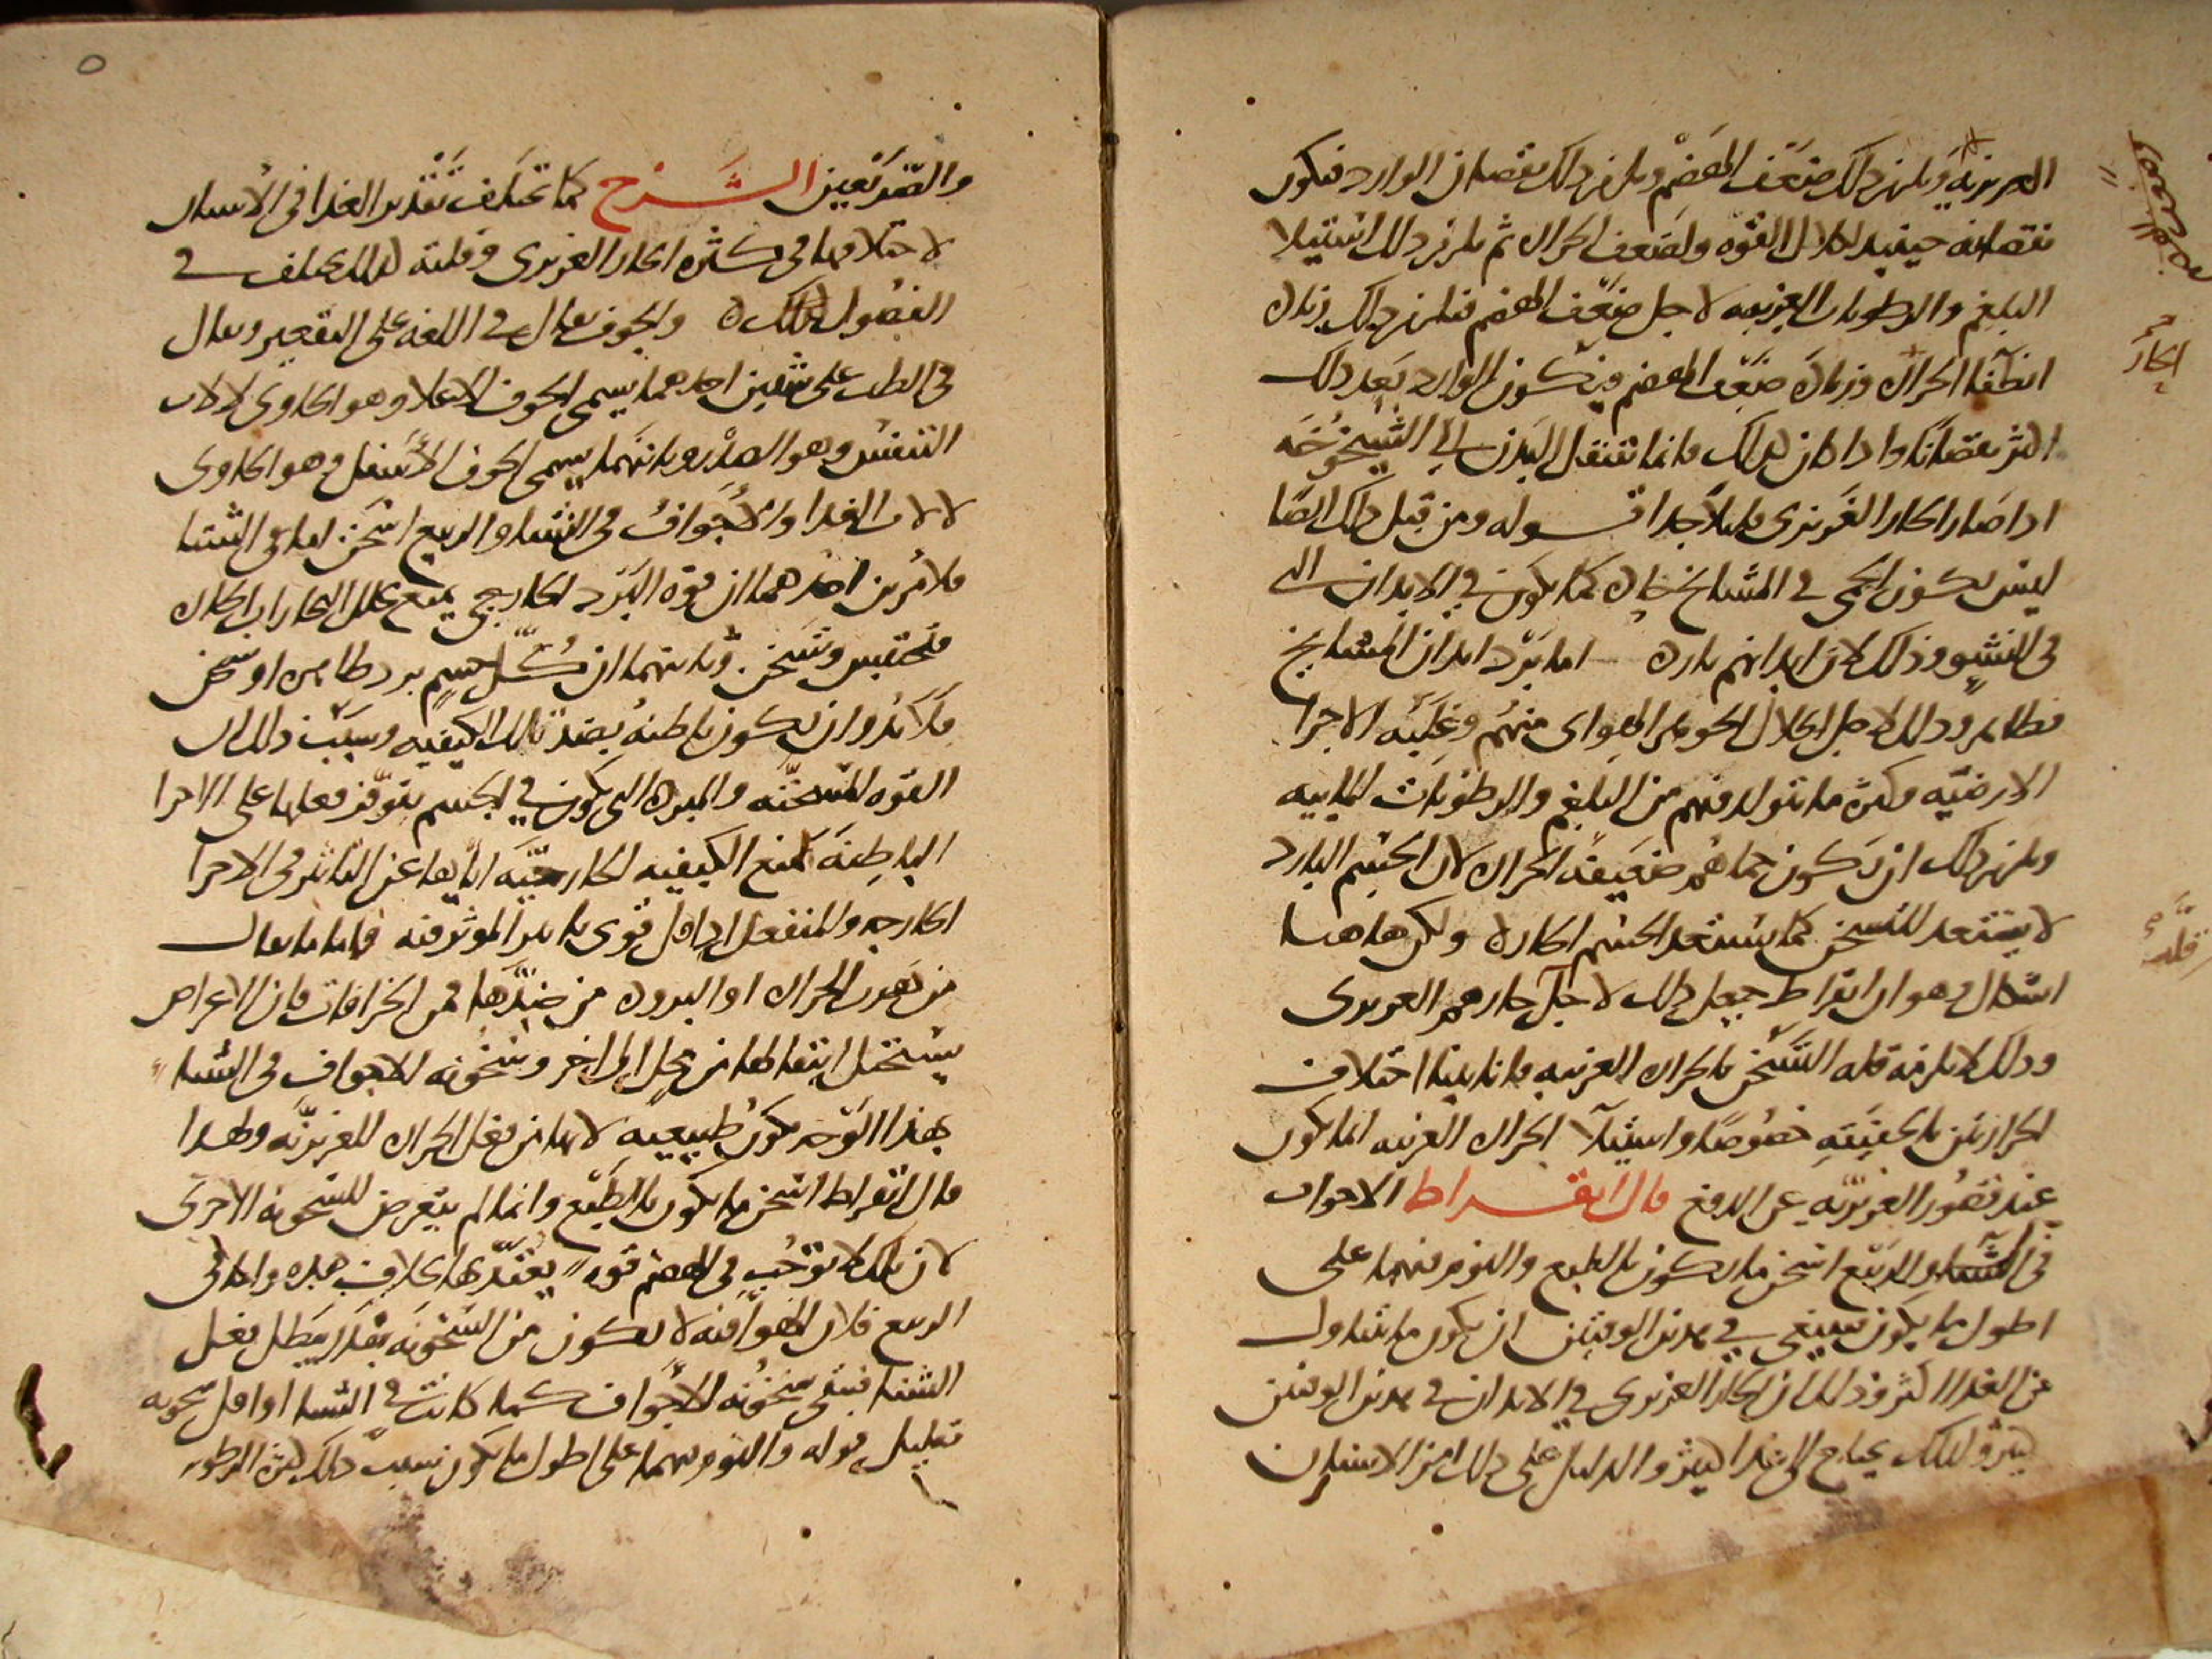 الغريزية ويلزم ذلك ضعف الهضم ويلزم ذلك نقصان الوارد فيكون
نقصانه حينئذ لكلال القوة ولضعف الحرارة ثم يلزم ذلك استيلا
البلغم والرطوبات الغريبة لاجل ضعف الهضم فيلزم ذلك زيادة
انطفا الحرارة وزيادة ضعف الهضم فيكون الوارد بعد ذلك
اكثر نقصانا واذا كان كذلك فانما تنتقل البدن الى الشيخوخه
اذا صار الحار الغريزي قليلا جدا قوله ومن قبل ذلك ايضا
ليس يكون الحمى في المشايخ حادة كما يكون في الابدان التي
في النشو وذلك لان ابدانهم باردة اما برد ابدان المشايخ
فظاهر وذلك لاجل انحلال الجوهر الهوائي منهم وغلبة الاجزا
الارضية وكثرة ما يتولد فيهم من البلغم والرطوبات المائية
ويلزم ذلك ان تكون حماهم ضعيفة الحرارة لان الجسم البارد
لا يستعد للتسخن كما يستعد الجسم الحار ولكن هاهنا
اشكال وهو ان ابقراط جعل ذلك لاجل حارهم الغريزي
وذلك لا يلزمه قلة التسخن بالحرارة الغريبة فانا بينا اختلاف
الحرارتين بالحقيقة خصوصا واستيلا الحرارة الغريبة انما يكون
عند قصور الغريزية عن الدفع قال ابقراط الاجواف
في الشتا والربيع اسخن ما يكون بالطبع والنوم فيهما على
اطول ما يكون فينبغي في هذين الوقتين ان يكون ما يتناول
من الغذا اكثر وذلك ان الحار الغريزي في الابدان في هذين الوقتين
كثير ولذلك يحتاج الى غذا كثير والدليل على ذلك امر الاسنان
الهضم
الحار
قلة
والصريعين الشرح كما تختلف تقدير الغذا في الاسنان
لاختلافها في كثرة الحار الغريزي وقلته كذلك يختلف في
الفصول لذلك والجوف يقال في اللغة على التقعير ويقال
في الطب على شيئين احدهما يسمى الجوف الاعلا وهو الحاوي لالات
التنفس وهو الصدر وثانيهما يسمى الجوف الاسفل وهو الحاوي
لالات الغذا والاجواف في الشتا والربيع اسخن اما في الشتا
فلامرين احدهما ان قوة البرد الخارجي يمنع تحلل البخارات الحارة
فتحتقن وتسخن وثانيهما ان كل جسم برد ظاهره او سخن
فلا بد وان يكون باطنه بضد تلك الكيفية وسبب ذلك ان
القوة المسخنة والمبردة التي تكون في الجسم يتوفر فعلها على الاجزا
الباطنة لمنع الكيفية الخارجية اياها عن التاثير في الاجزا
الخارجة والمنفعل اذا قل قوي تاثير المؤثر فيه فاما ما يقال
من هرب الحرارة او البرودة من ضدها فمن الخرافات فان الاعراض
يستحيل انتقالها من محل الى اخر وسخونة الاجواف في الشتا
بهذا الوجه تكون طبيعية لانها من فعل الحرارة الغريزية ولهذا
قال ابقراط اسخن ما يكون بالطبع وانما لم يتعرض للسخونة الاخرى
لان تلك لا توجب في الهضم قوة يعتد بها بخلاف هذه واما في
الربيع فلان الهوا فيه لا يكون من السخونة بقدر يبطل فعل
الشتا فتبقى سخونة الاجواف كما كانت في الشتا او اقل سخونة
بقليل قوله والنوم فيهما على اطول ما يكون سبب ذلك كثرة الرطوبة